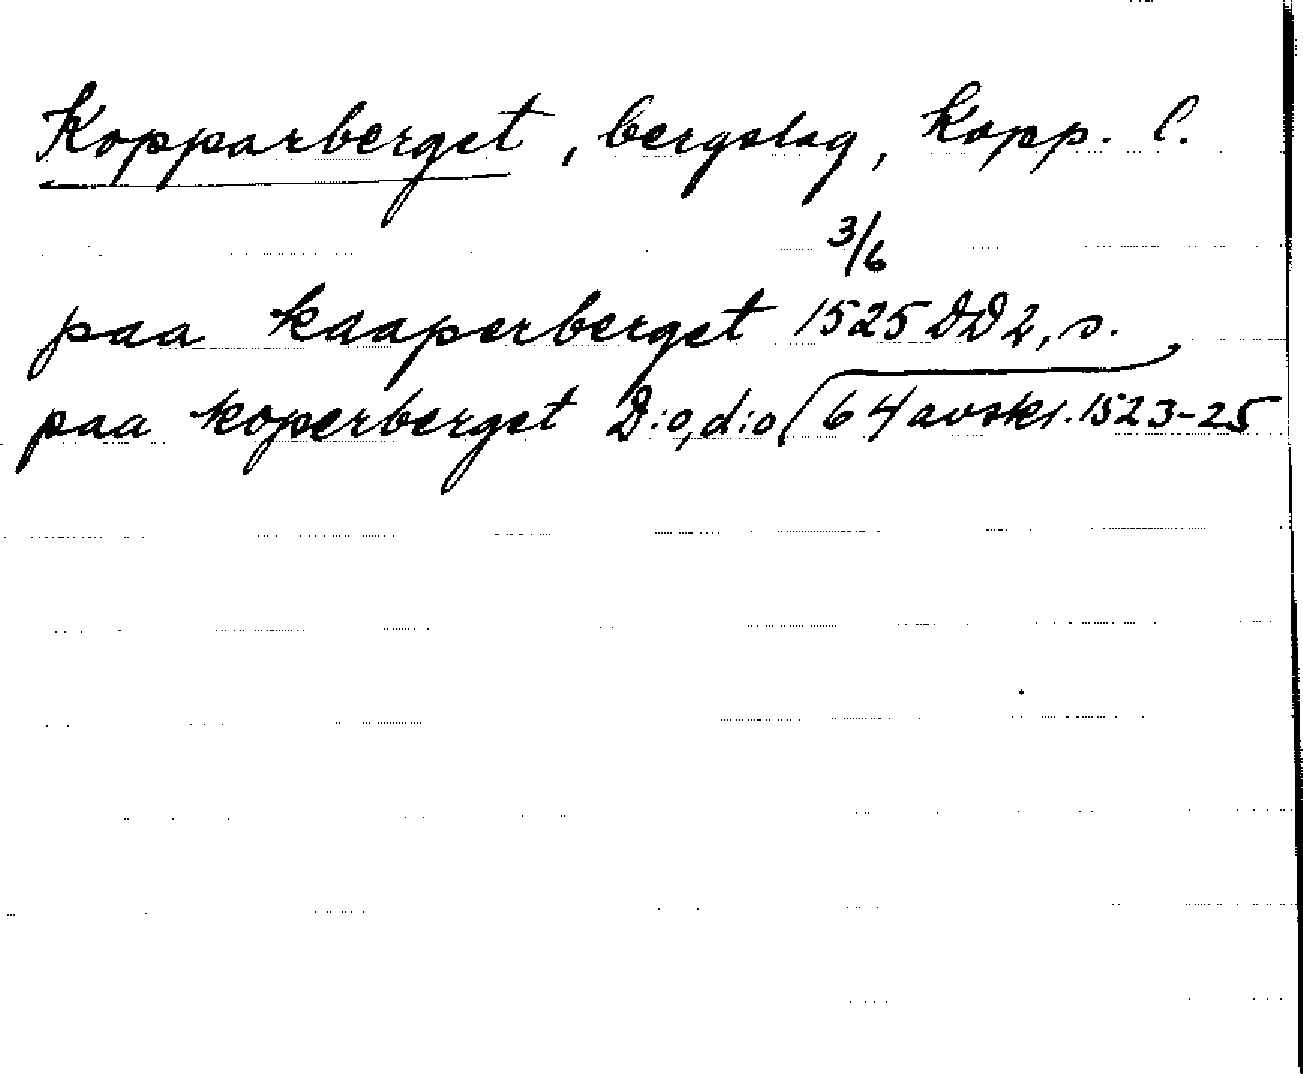 Kopparberget, bergslag, Kopp. l.
3/6
paa kaaperberget 1525 DD 2, s.
paa koperberget D:o, d:o 64 avskr. 1523-25